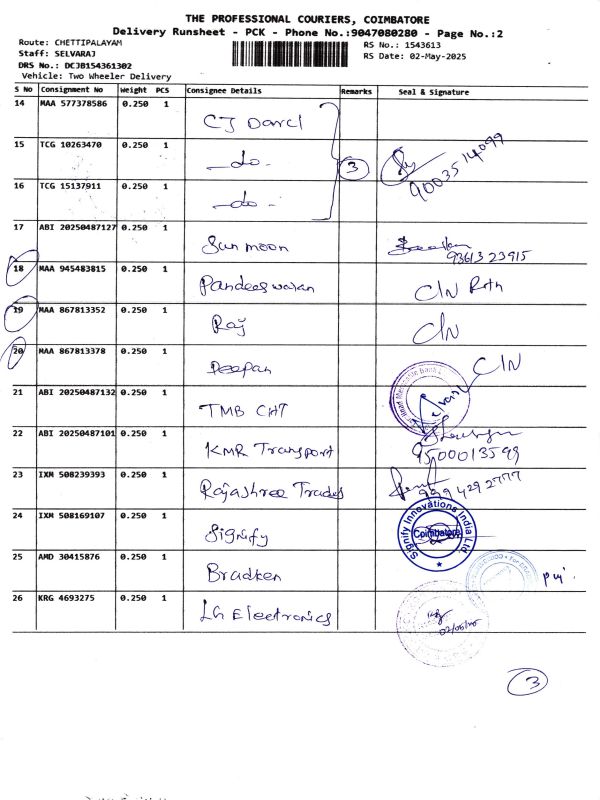 THE PROFESSIONAL COURIERS, COIMBATORE
Delivery Runsheet - PCK - Phone No.:9047080280 - Page No.:2
Route: CHETTIPALAYAM
Staff: SELVARAJ
DRS No.: DCJB154361302
Vehicle: Two Wheeler Delivery
RS No.: 1543613
RS Date: 02-May-2025
S No Consignment No Weight PCS Consignee Details Remarks Seal & Signature
14 MAA 577378586 0.250 1 CJ Darcl
15 TCG 10263470 0.250 1 -do- 3 9003514099
16 TCG 15137911 0.250 1 -do-
17 ABI 20250487127 0.250 1 Sun moon 93613 23915
18 MAA 945483815 0.250 1 Pandeeswaran C/N Rtn
19 MAA 867813352 0.250 1 Raj C/N
20 MAA 867813378 0.250 1 Deepan C/N
21 ABI 20250487132 0.250 1 TMB CHT
22 ABI 20250487101 0.250 1 KMR Transport 9500013599
23 IXM 508239393 0.250 1 Rajashree Trades 9994292777
24 IXM 508169107 0.250 1 Signify Signify Innovations India Ltd. Coimbatore
25 AMD 30415876 0.250 1 Bradken
26 KRG 4693275 0.250 1 LG Electronics
3